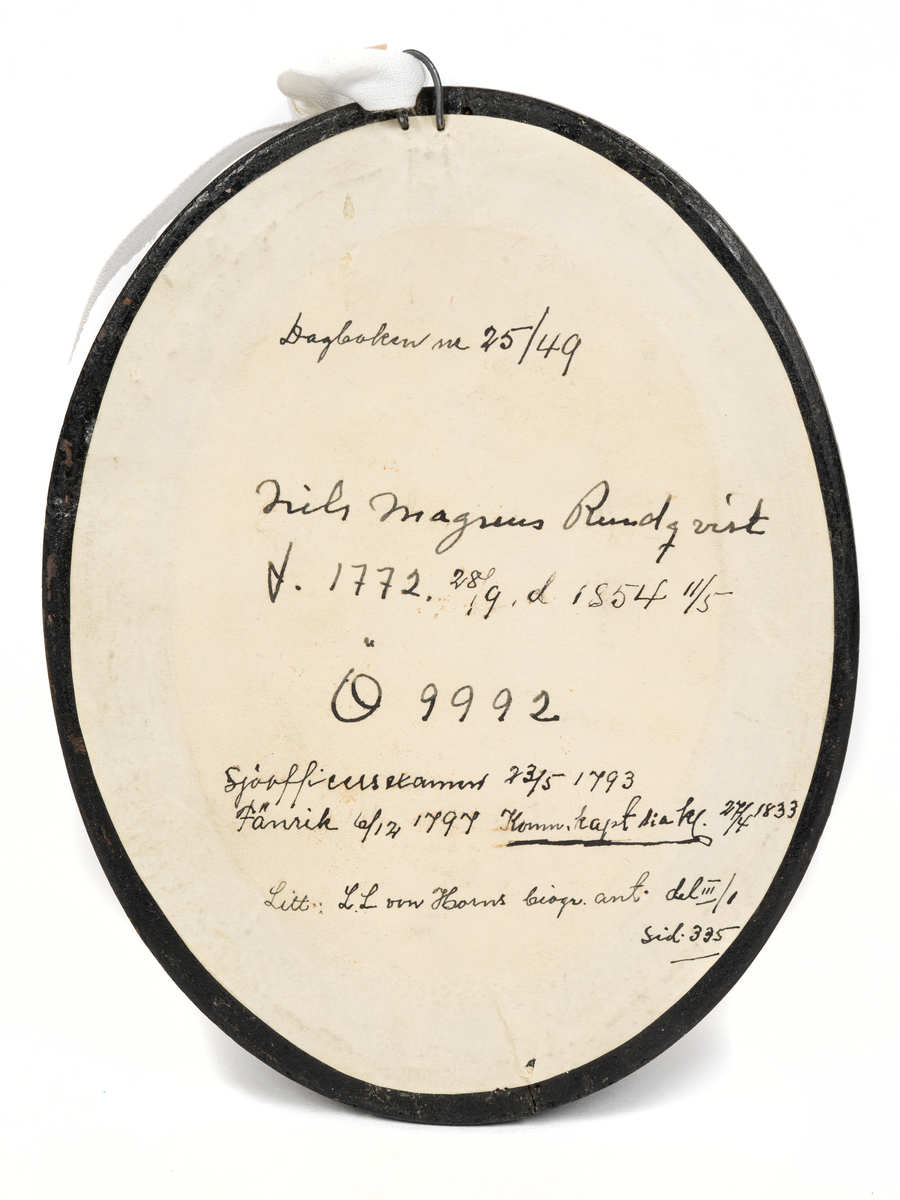 Dagboken nr 25/49
Nils Magnus Rundqvist
f. 1772. 28/9. d 1854 11/5
Ö 9992
Sjöofficersexamen 23/5 1793
Fänrik 6/12 1797 Komm. kapt kl. 27/4 1833
Litt: L.L von Horns biogr. ant. del III/1
sid. 335